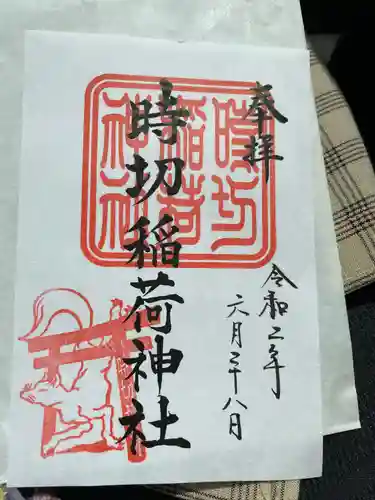 奉拝
時切稲荷神社
時切
稲荷
神社
令和二年
六月二十八日